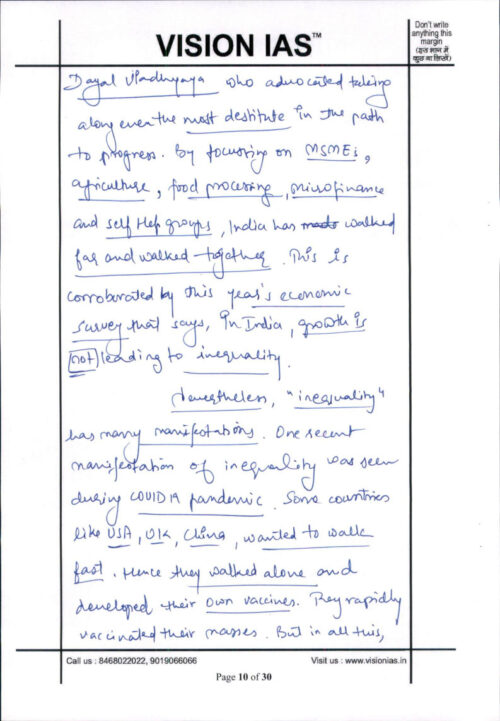 VISION IAS™
Don't write
anything this
margin
(इस भाग में
कुछ ना लिखें)
Dayal Upadhyaya who advocated taking
along even the most destitute in the path
to progress. By focussing on MSMEs,
agriculture, food processing, microfinance
and self Help groups, India has made walked
far and walked together. This is
corroborated by this year's economic
survey that says, in India, growth is
not leading to inequality.
Nevertheless, "inequality"
has many manifestations. One recent
manifestation of inequality was seen
during COVID 19 pandemic. Some countries
like USA, UK, China, wanted to walk
fast. Hence they walked alone and
developed their own vaccines. They rapidly
vaccinated their masses. But in all this,
Call us : 8468022022, 9019066066
Visit us : www.visionias.in
Page 10 of 30